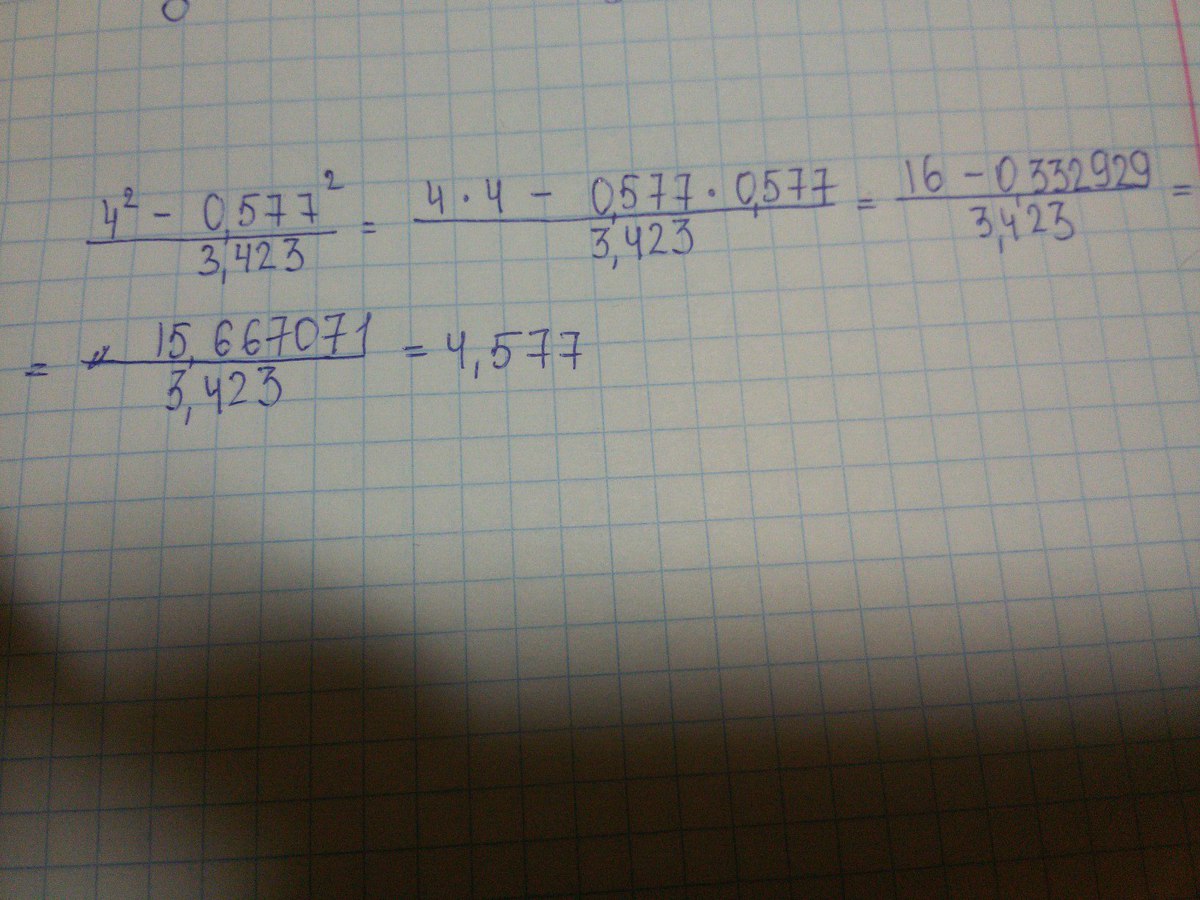 4² - 0,577² / 3,423 = 4 · 4 - 0,577 · 0,577 / 3,423 = 16 - 0,332929 / 3,423 =
= 15,667071 / 3,423 = 4,577